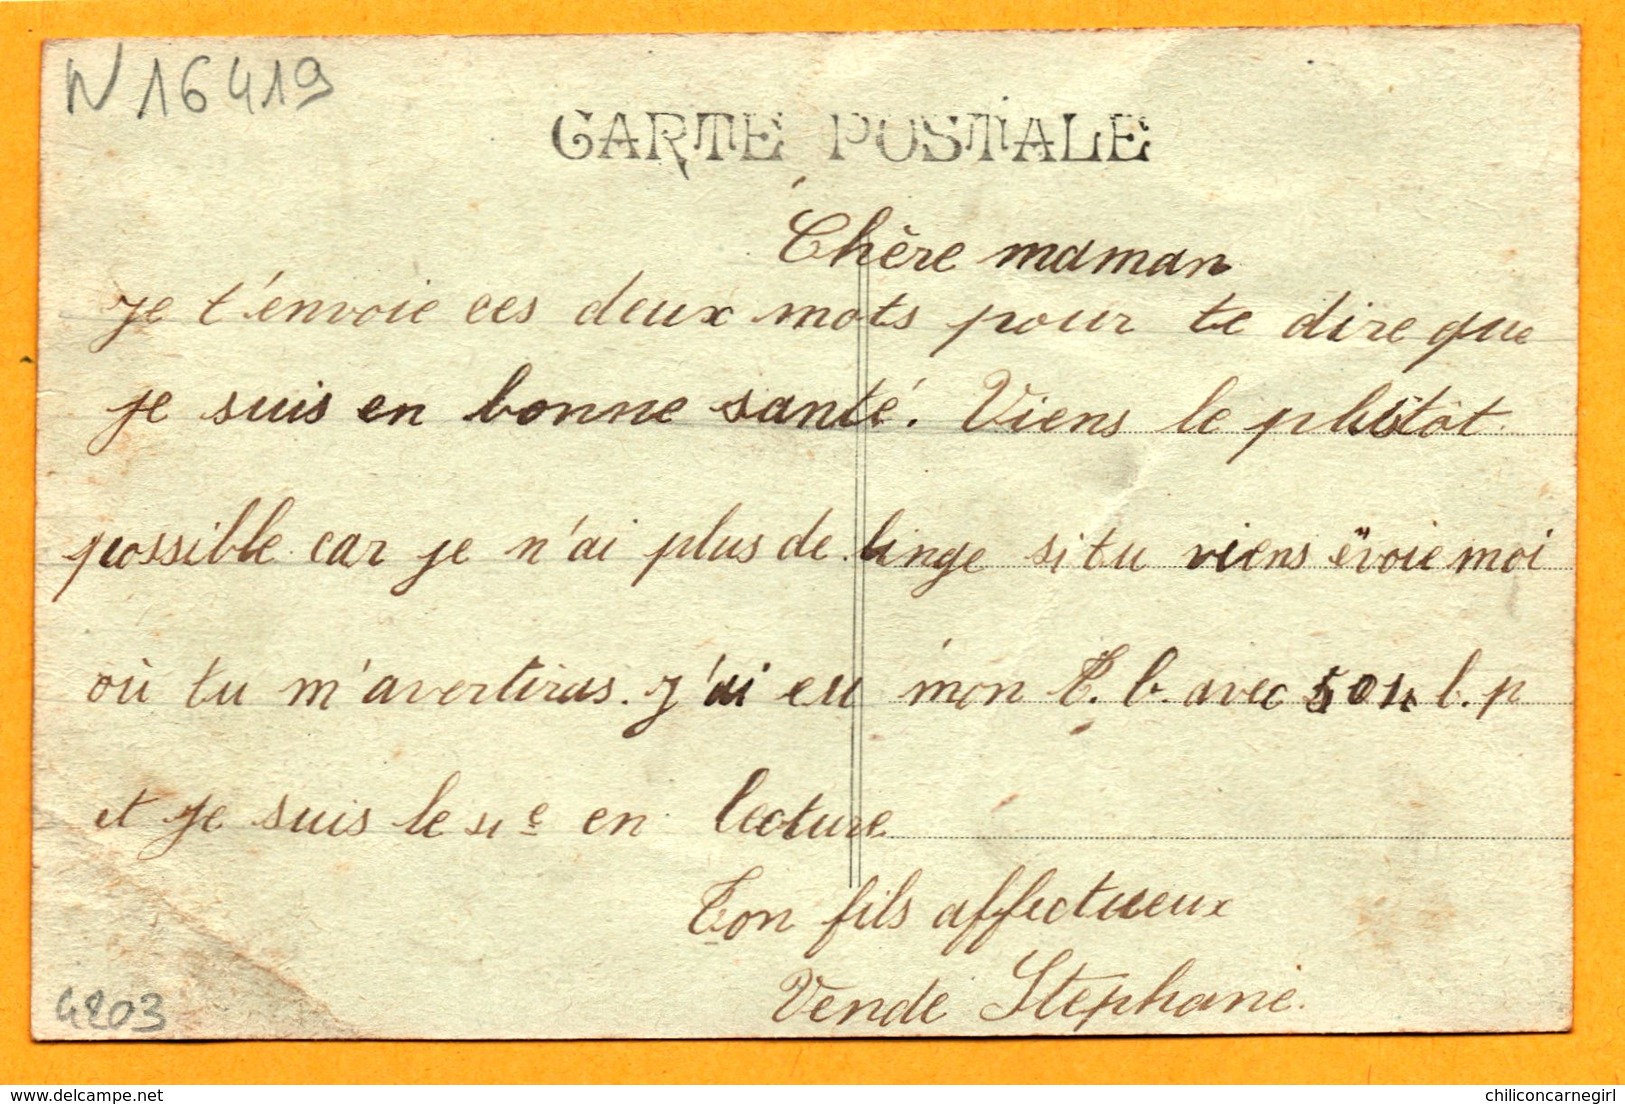 N 16419
CARTE POSTALE
Chère maman
Je t'envoie ces deux mots pour te dire que
je suis en bonne santé. Viens le plustôt
possible car je n'ai plus de linge si tu viens
où tu m'avertiras. J'ai eu mon T. b. avec b. p
et je suis le 4e en lecture
Ton fils affectueux
Vende Stephane.
4203
delcampe.net
chiliconcarnegirl